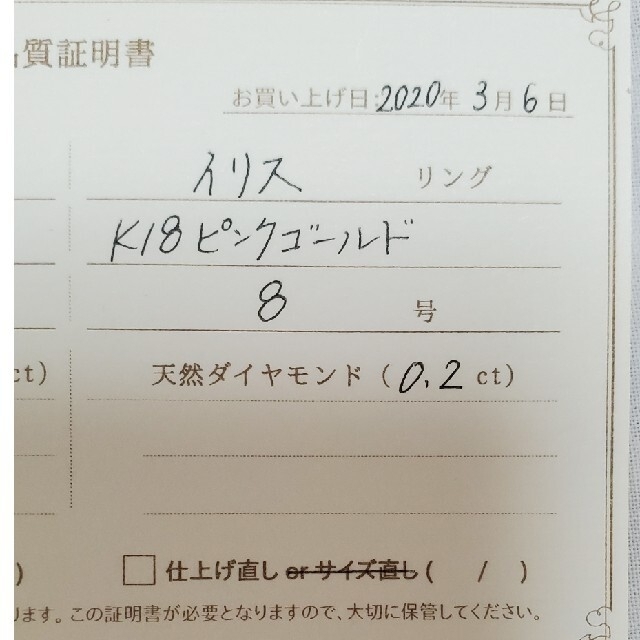 質証明書
お買い上げ日:2020年 3月 6日
イリス リング
K18ピンクゴールド
8 号
ct)
天然ダイヤモンド (0.2 ct)
)
仕上げ直し or サイズ直し ( / )
ります。この証明書が必要となりますので、大切に保管してください。